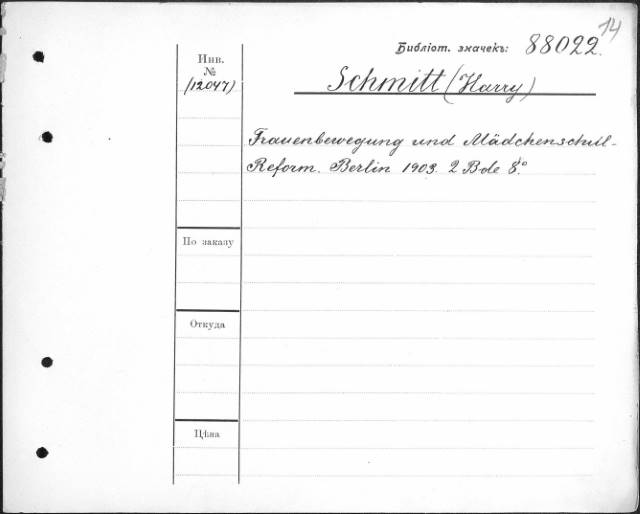 14
Библіот. значекъ: 88022.
Инв.
№
(12047)
Schmitt (Harry)
Frauenbewegung und Mädchenschul-
Reform. Berlin 1903. 2 Bde 8°.
По заказу
Откуда
Цѣна